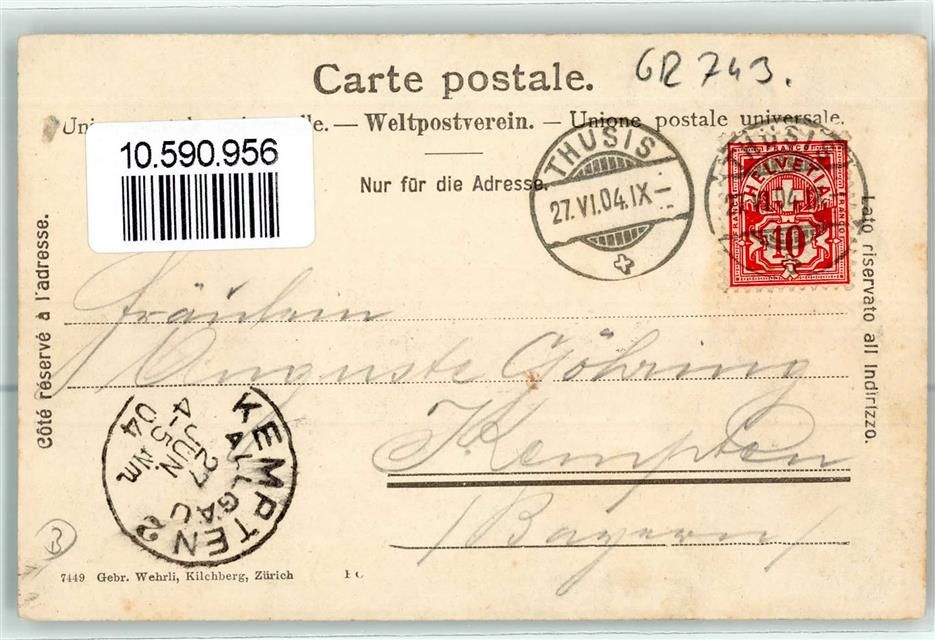 Carte postale.
GR 743.
Weltpostverein. — Unione postale universale.
10.590.956
Nur für die Adresse.
THUSIS
27.VI.04.IX–
FRANCO
HELVETIA
FRANCO
10
Côté réservé à l'adresse.
Lato riservato all indirizzo.
Fräulein
Auguste Göhring
Kempten
/Bayern/
KEMPTEN 2
ALLGÄU
27
JUN.
4-5 Nm
04
3
7449 Gebr. Wehrli, Kilchberg, Zürich